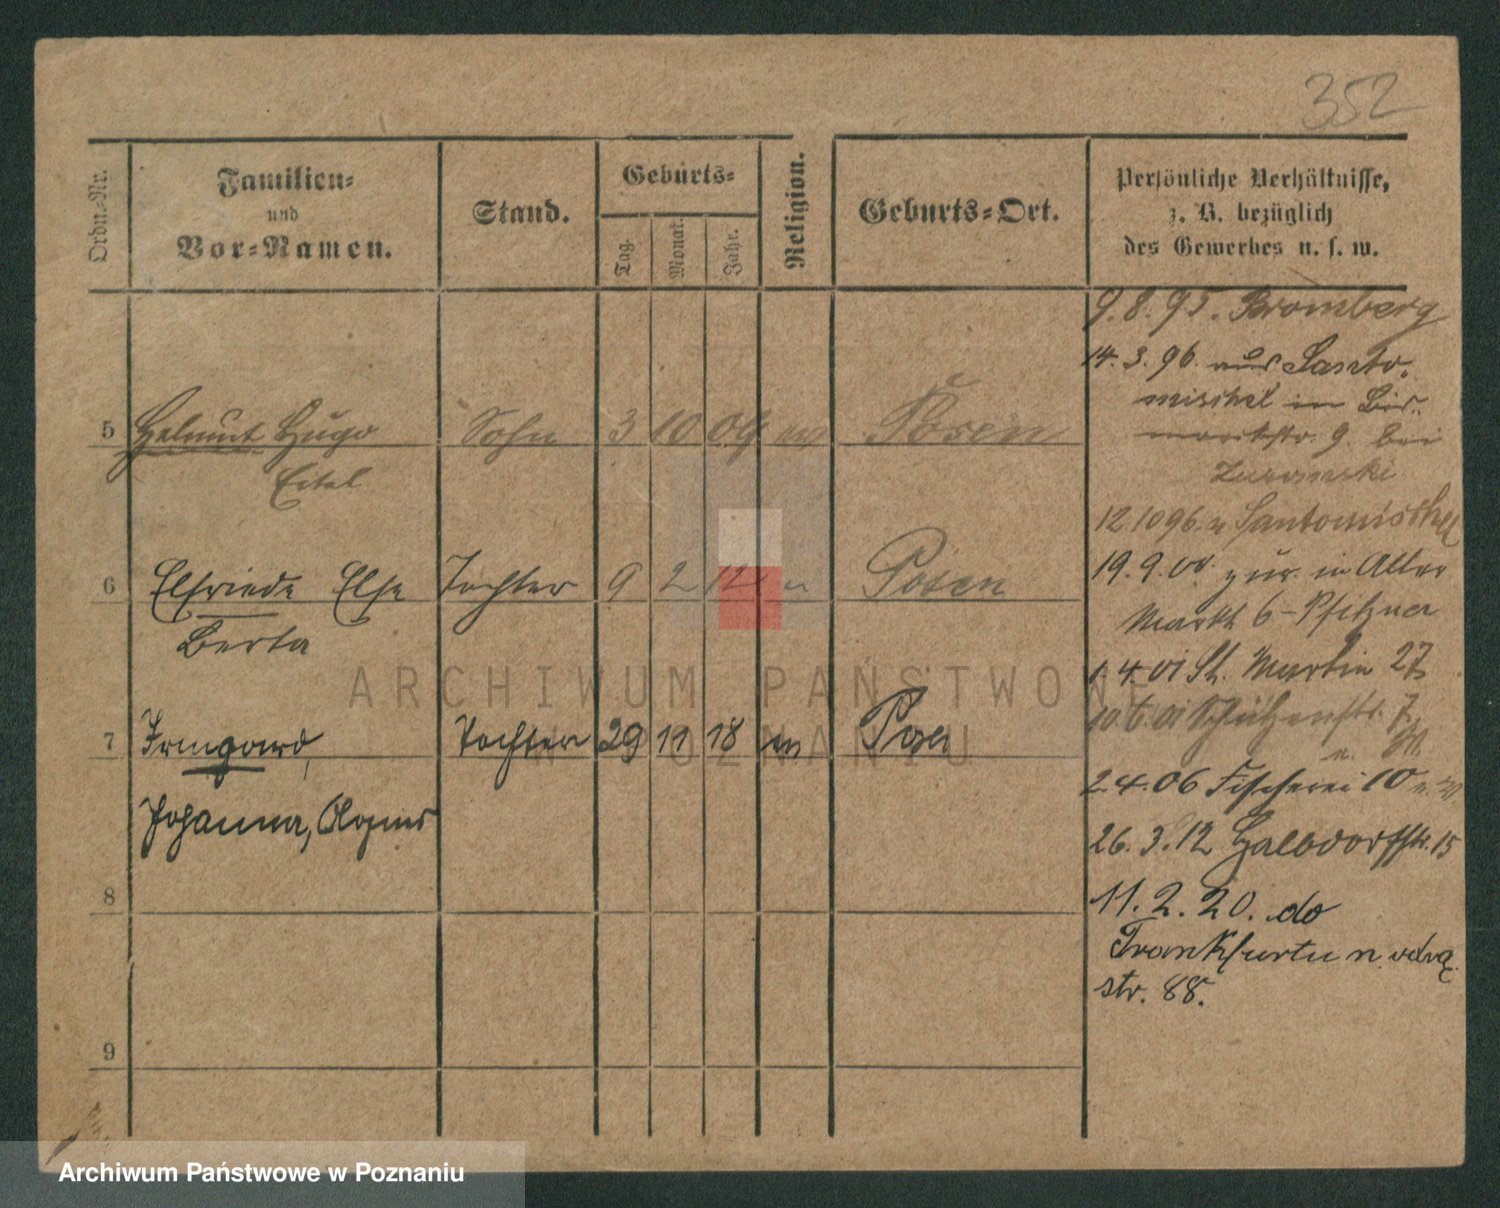 352
Ordn.-Nr.
Familien-
und
Vor-Namen.
Stand.
Geburts-
Tag.
Monat.
Jahr.
Religion.
Geburts-Ort.
Persönliche Verhältnisse,
z. B. bezüglich
des Gewerbes u. s. w.
5 Helmut Hugo Sohn 3 10 09 Posen
Eitel
6 Elfriede Else Tochter 9 2 12 Posen
Berta
7 Irmgard, Tochter 29 11 18 Posen
Johanna,
8
9
9.8.95. Bromberg
14.3.96. aus Santo-
mischel in Bis-
markstr. 9. bei
12 10 96. n Santomischel
19.9.00. zur. in Alter
Markt 6 - Pfitzner
1.4.01 St. Martin 27
10.6.01 Schützenstr. 7
2.4.06 Fischerei 10
26.3.12 Halbdorfstr. 15
11.2.20. do
Frankfurtu n. odrą
str. 88.
ARCHIWUM PAŃSTWOWE
W POZNANIU
Archiwum Państwowe w Poznaniu